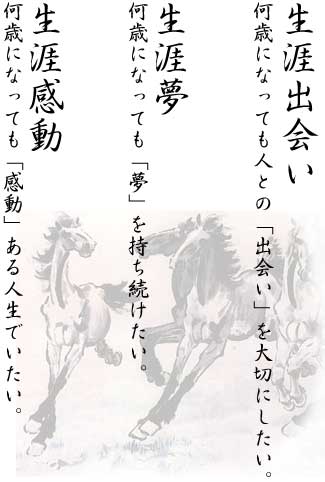 生涯出会い
何歳になっても人との「出会い」を大切にしたい。
生涯夢
何歳になっても「夢」を持ち続けたい。
生涯感動
何歳になっても「感動」ある人生でいたい。